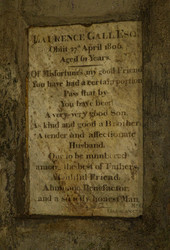 LAURENCE GALL ESQ
Obiit 27 April 1806
Aged 61 Years.
Of Misfortune my good Friend
You have had a certain portion
Pass that by
You have been
A very very good Son
As kind and good a Brother
A tender and affectionate
Husband.
One to be numbered
among the best of Fathers
A faithful Friend.
A humane Benefactor
and a strictly honest Man